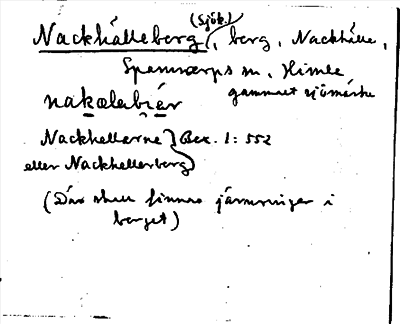 Nackhälleberg (Sjök.), berg, Nackhälle,
Spannarps sn, Himle
gammalt sjömärke
nakælabjér
Nackhellarne } Bex. 1: 552
eller Nackhellerberg
(Där skall finnas järnringar i
berget)